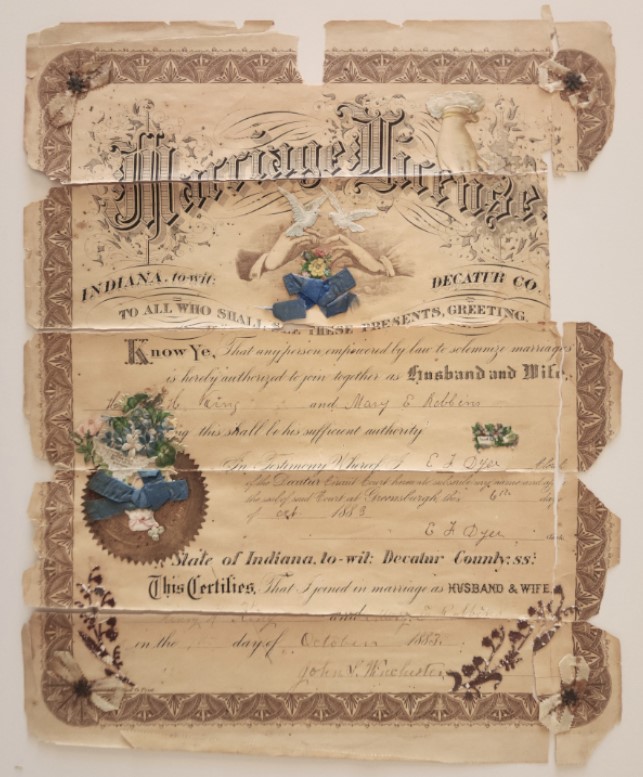 Marriage License.
INDIANA, to-wit: DECATUR CO.
TO ALL WHO SHALL SEE THESE PRESENTS, GREETING.
Know Ye, That any person empowered by law to solemnize marriages
is hereby authorized to join together as Husband and Wife,
H. King and Mary E Robbins
this shall be his sufficient authority
In Testimony Whereof, I E F Dyer Clerk
of the Decatur Circuit Court hereunto subscribe my name and affix
the seal of said Court at Greensburgh this 6th day
of Oct 1883
E F Dyer
State of Indiana, to-wit: Decatur County: ss:
This Certifies, That I joined in marriage as HUSBAND & WIFE,
King and
on the day of October 1883.
John S. Winchester